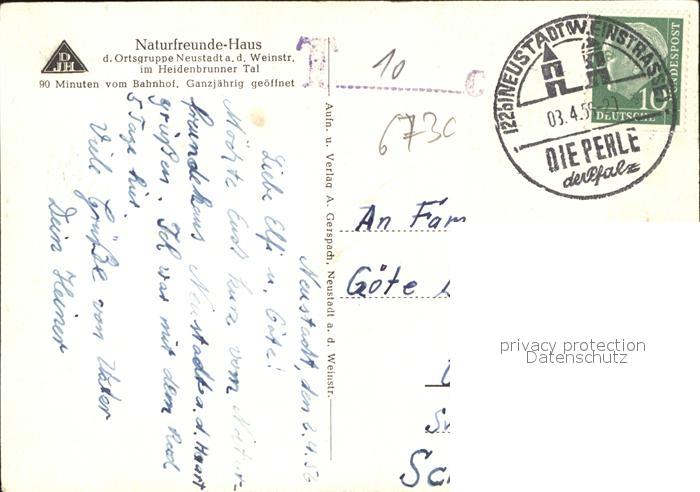 DJH
Naturfreunde-Haus
d. Ortsgruppe Neustadt a. d. Weinstr.
im Heidenbrunner Tal
90 Minuten vom Bahnhof, Ganzjährig geöffnet
T
10
c
6730
(22b) NEUSTADT (WEINSTRASSE)
03.4.56
DIE PERLE
der Pfalz
10
DEUTSCHE
BUNDESPOST
Aufn. u. Verlag A. Gerspach, Neustadt a. d. Weinstr.
Neustadt, den 2.4.56
Liebe Elfi u. Göte!
Möchte Euch kurz vom Natur-
freundehaus Neustadt a. d. Haart
grüßen. Ich war mit dem Rad
5 Tage hier.
Viele Grüße von Vater
Dein Heiner
An Fam
Göte
privacy protection
Datenschutz